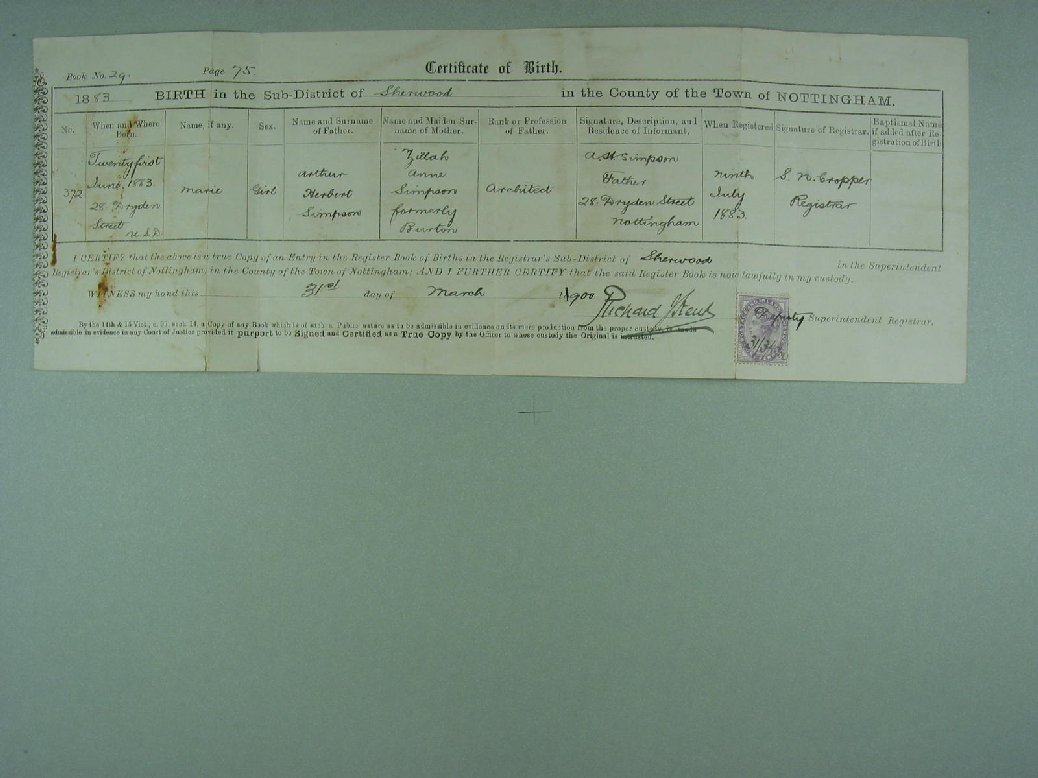 Book No. 29. Page 75 Certificate of Birth.
1883 BIRTH in the Sub-District of Sherwood in the County of the Town of NOTTINGHAM.
No. When and Where Born. Name, if any. Sex. Name and Surname of Father. Name and Maiden Surname of Mother. Rank or Profession of Father. Signature, Description, and Residence of Informant. When Registered Signature of Registrar. Baptismal Name if added after Registration of Birth
372 Twenty first June, 1883 28 Dryden Street U.S.D. Marie Girl Arthur Herbert Simpson Zillah Anne Simpson formerly Burton Architect A. H. Simpson Father 28 Dryden Street Nottingham Ninth July 1883. S. N. Cropper Registrar
I CERTIFY that the above is a true Copy of an Entry in the Register Book of Births in the Registrar's Sub-District of Sherwood in the Superintendent
Registrar's District of Nottingham, in the County of the Town of Nottingham; AND I FURTHER CERTIFY that the said Register Book is now lawfully in my custody.
WITNESS my hand this 31st day of March 1900 Richard
Deputy Superintendent Registrar.
31/3/
By the 14th & 15 Vict., c. 99, sect. 14, a Copy of any Book which is of such a Public nature as to be admissible in evidence on its mere production from the proper custody, is made
admissible in evidence in any Court of Justice provided it purport to be Signed and Certified as a True Copy by the Officer to whose custody the Original is entrusted.